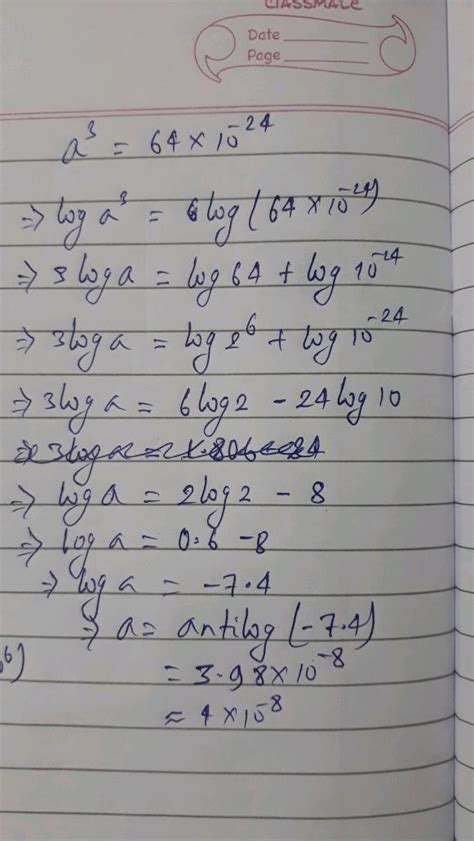 CLASSMATE
Date
Page
a³ = 64 × 10⁻²⁴
⇒ log a³ = log (64 × 10⁻²⁴)
⇒ 3 log a = log 64 + log 10⁻²⁴
⇒ 3 log a = log 2⁶ + log 10⁻²⁴
⇒ 3 log a = 6 log 2 - 24 log 10
⇒ log a = 2 log 2 - 8
⇒ log a = 0.6 - 8
⇒ log a = -7.4
⇒ a = antilog (-7.4)
= 3.98 × 10⁻⁸
≈ 4 × 10⁻⁸